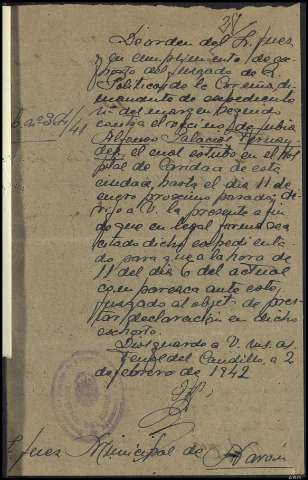 De orden del Sr. Juez
y en cumplimiento de ex-
horto del Juzgado de R.
Politicas de la Coruña, di-
manante de expediente
nº del margen seguido
contra el vecino de Jubia
Alfonso Palacios Fernan-
dez, el cual estubo en el Hos
pital de Caridad de esta
ciudad, hasta el dia 11 de
enero proximo pasado; di-
rijo a V. la presente a fin
de que en legal forma sea
citado dicho expedienta-
do para que a la hora de
11 del dia 6 del actual
comparezca ante este
Juzgado al objeto de pres-
tar declaración en dicho
exhorto.
Dios guarde a V. ms. as.
Ferrol del Caudillo, a 2
de febrero de 1942
Sr. Juez Municipal de Narón